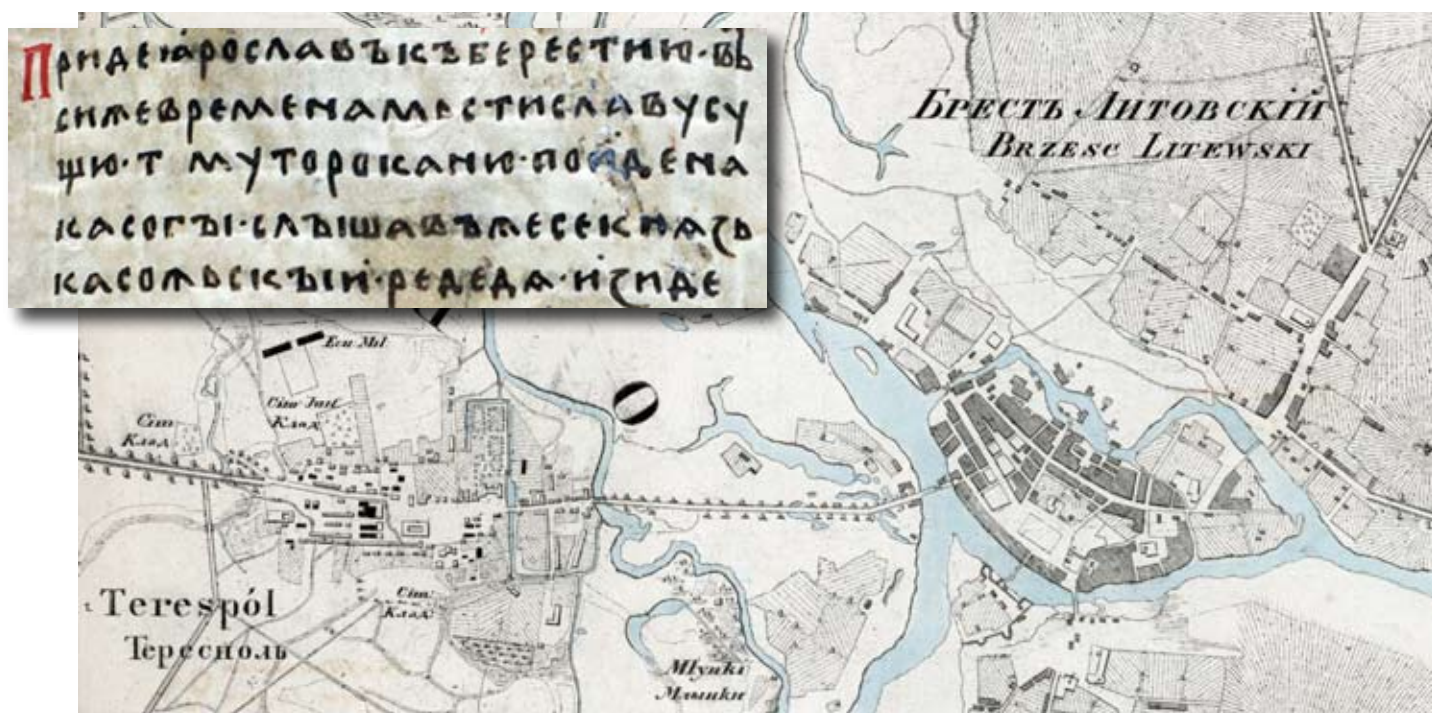 Придеꙗрославъкъберестию·въ
сижевременамьстиславусу
щю·т мутороканю·поидена
касогъı·слъıшавъжесекнѧꙁь
касожьскъıи·редедѧ·иꙁиде
БРЕСТЪ ЛИТОВСКIЙ
BRZESC LITEWSKI
Ecu Mil
Cim Juif
Клад
Cim
Клад
Cim
Клад
Terespól
Тересполь
Młynki
Млынки